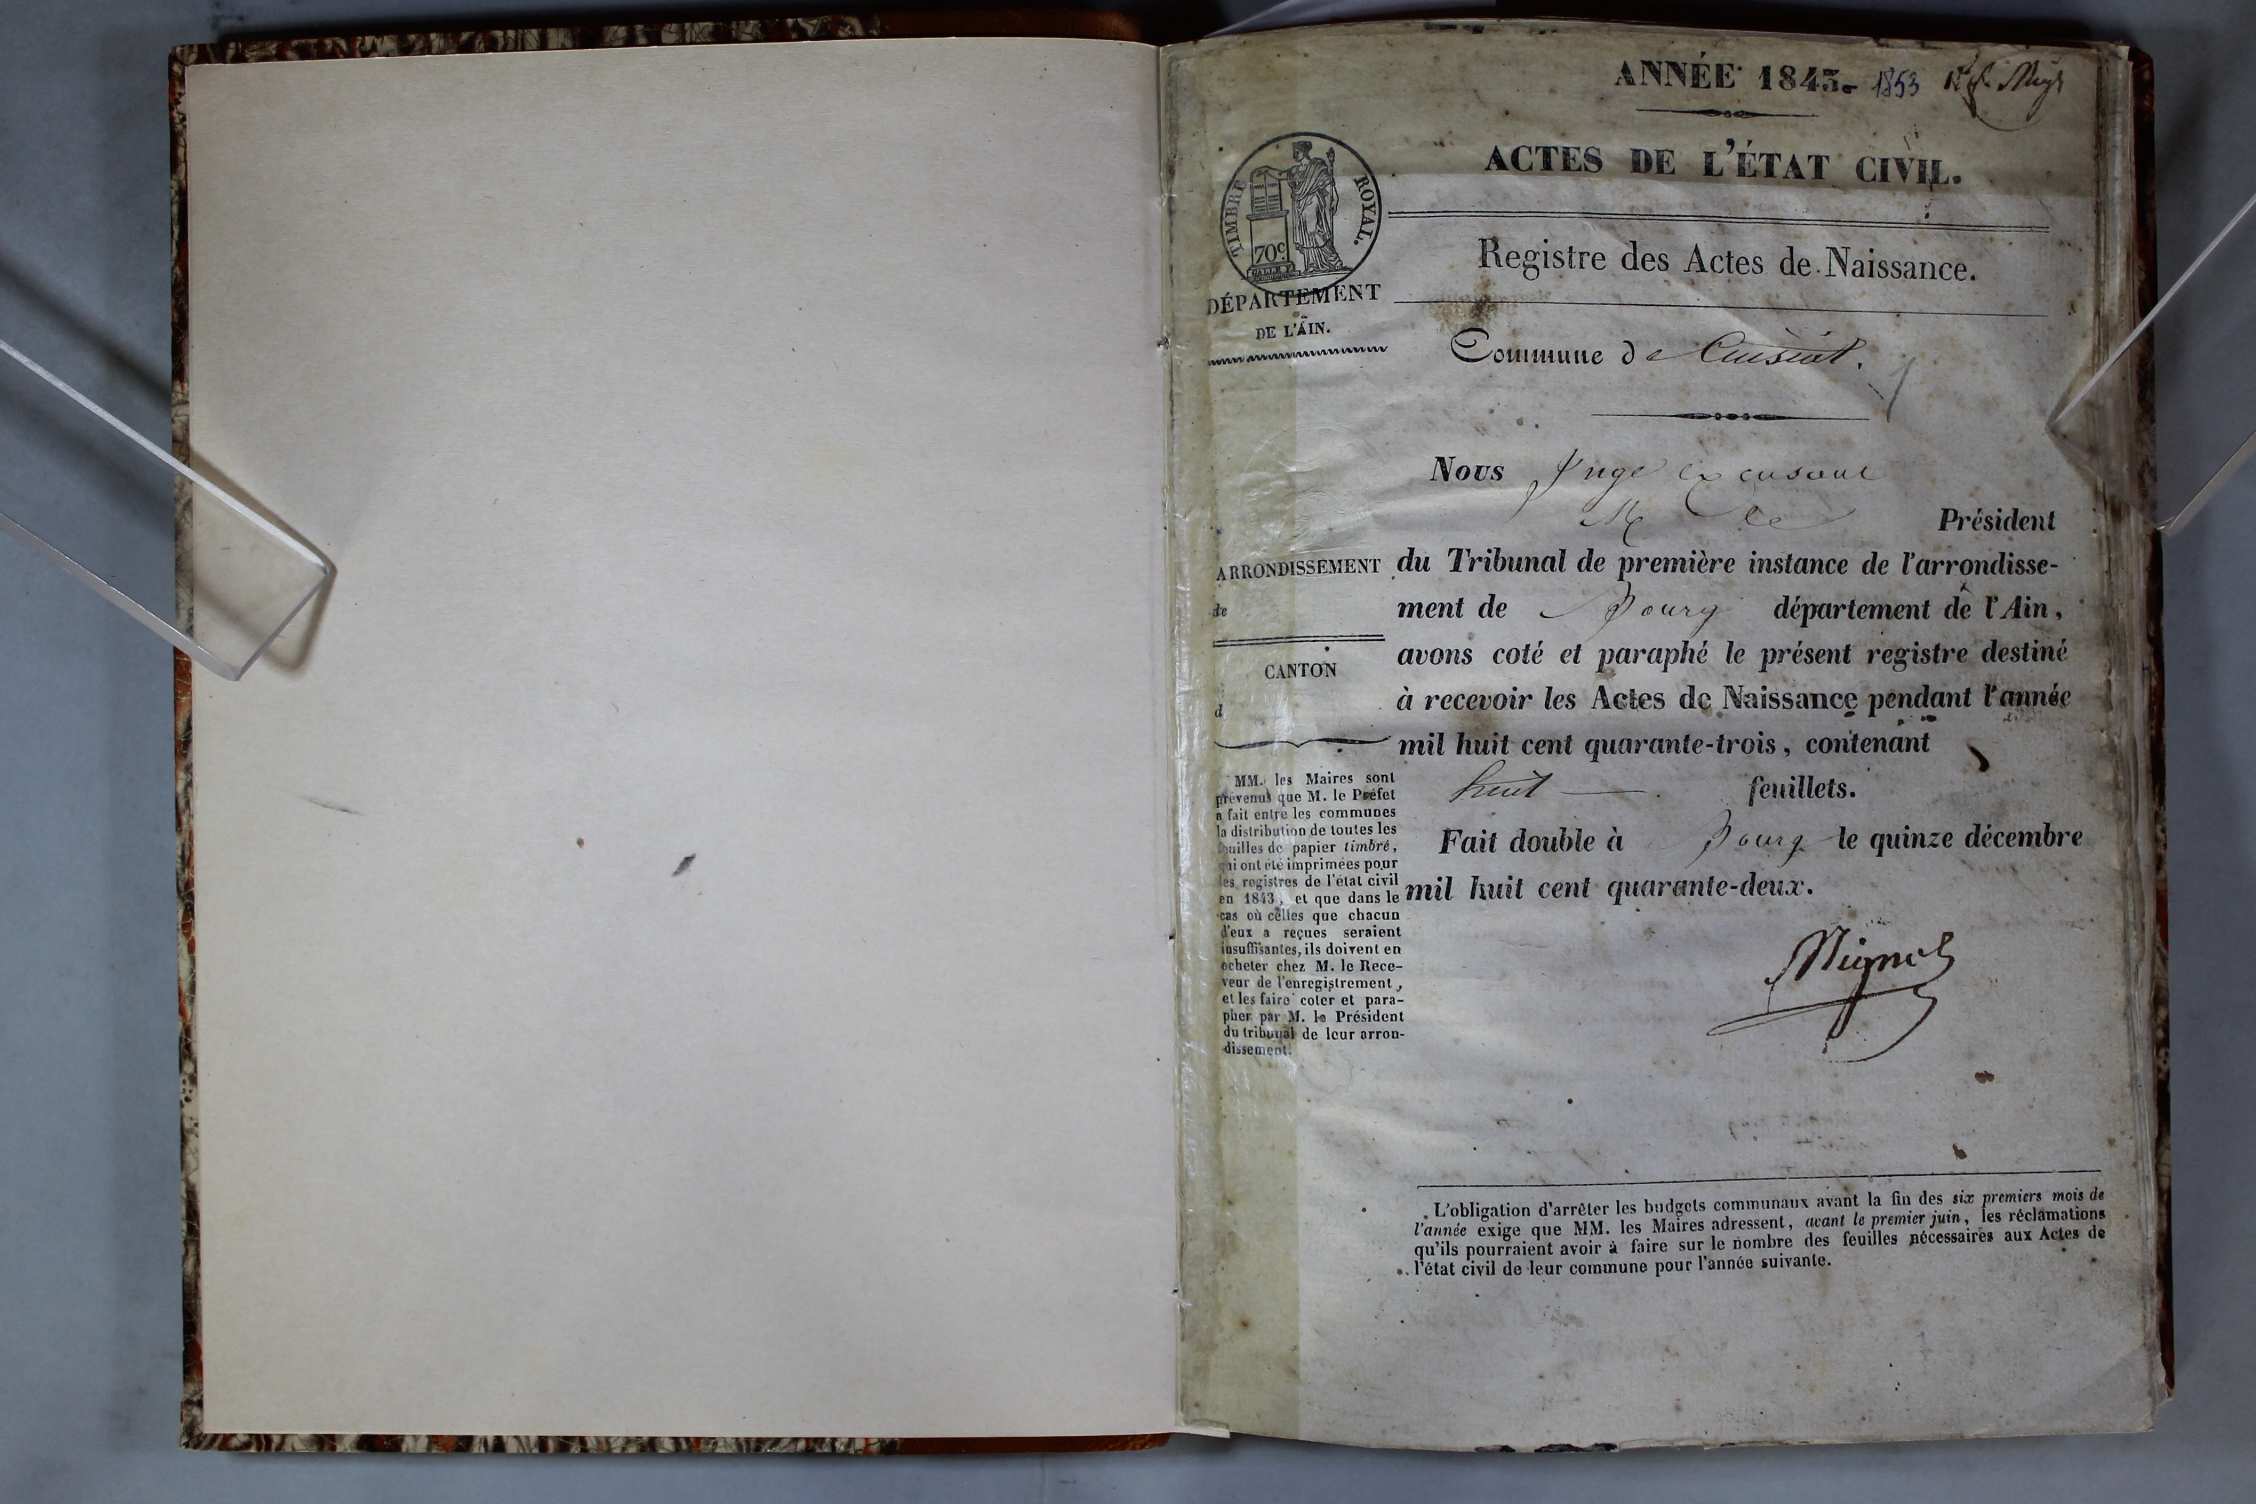 ANNÉE 1843. 1853
ACTES DE L'ÉTAT CIVIL.
TIMBRE ROYAL.
70c
DÉPARTEMENT
DE L'AIN.
Registre des Actes de Naissance.
Commune de Cuisiat.
Nous Juge
Président
ARRONDISSEMENT
de
du Tribunal de première instance de l'arrondisse-
ment de Bourg département de l'Ain,
avons coté et paraphé le présent registre destiné
à recevoir les Actes de Naissance pendant l'année
mil huit cent quarante-trois, contenant
huit feuillets.
Fait double à Bourg le quinze décembre
mil huit cent quarante-deux.
Mignot
CANTON
d
MM. les Maires sont
prévenus que M. le Préfet
a fait entre les communes
la distribution de toutes les
feuilles de papier timbré,
qui ont été imprimées pour
les registres de l'état civil
en 1843, et que dans le
cas où celles que chacun
d'eux a reçues seraient
insuffisantes, ils doivent en
acheter chez M. le Rece-
veur de l'enregistrement,
et les faire coter et para-
pher par M. le Président
du tribunal de leur arron-
dissement.
L'obligation d'arrêter les budgets communaux avant la fin des six premiers mois de
l'année exige que MM. les Maires adressent, avant le premier juin, les réclamations
qu'ils pourraient avoir à faire sur le nombre des feuilles nécessaires aux Actes de
l'état civil de leur commune pour l'année suivante.